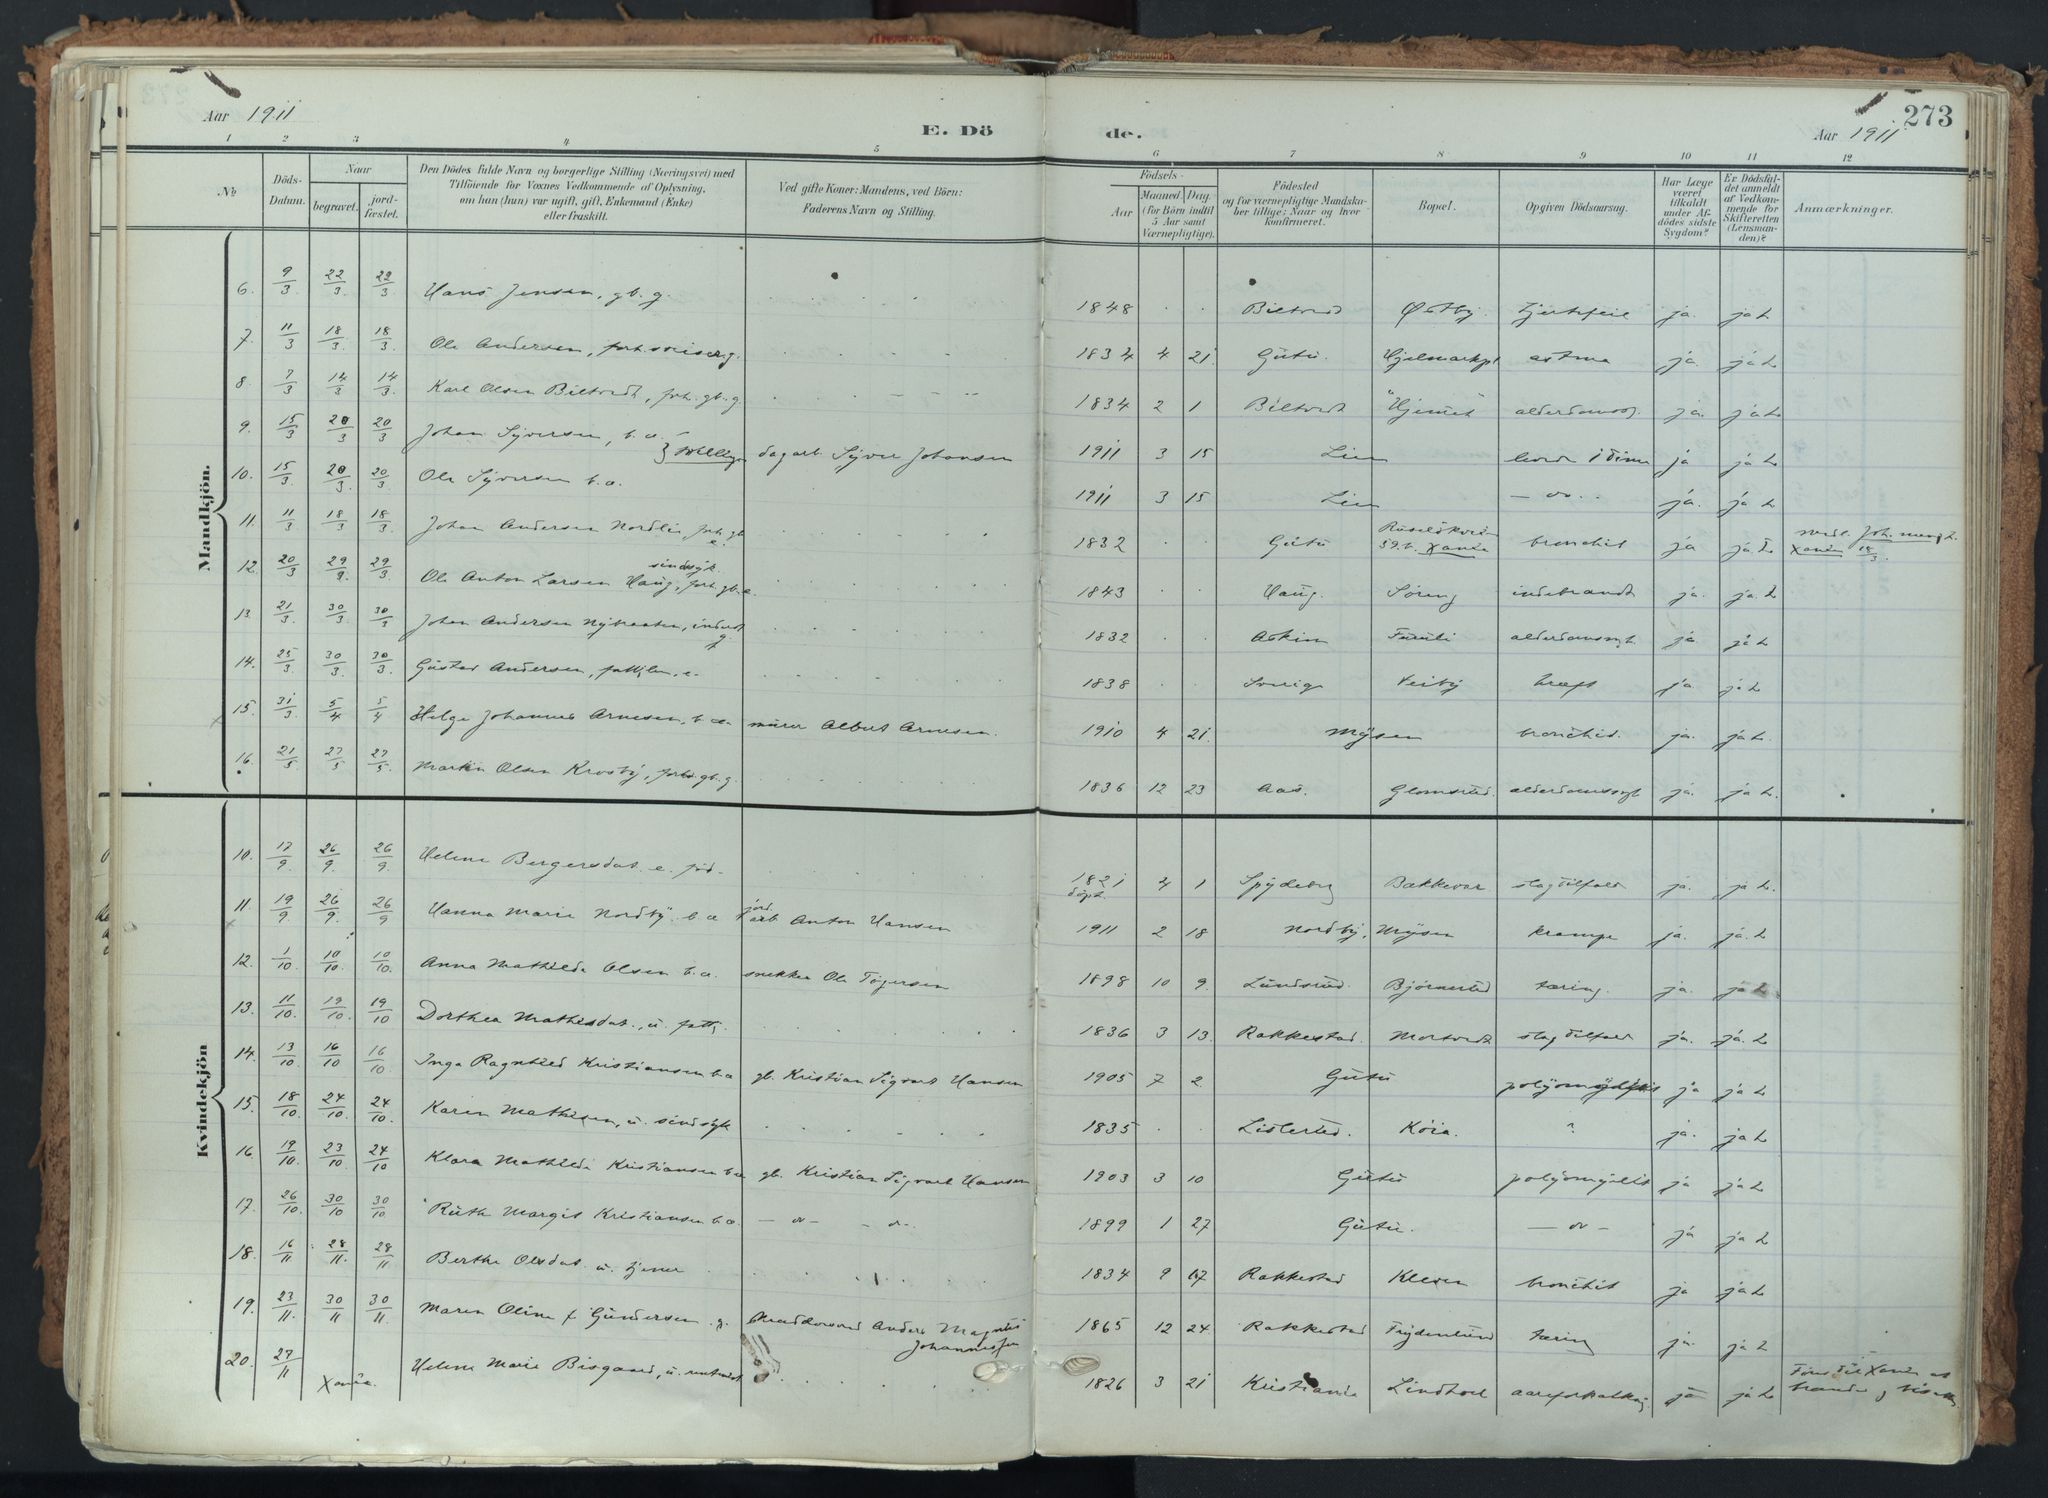 Aar 1911
E. Dö de.
Aar 1911
273
1 2 3 4 5 6 7 8 9 10 11 12
No
Döds-Datum.
Naar
begravet.
jord-fæstet.
Den Dödes fulde Navn og borgerlige Stilling (Næringsvei) med
Tilföiende for Voxnes Vedkommende af Oplysning,
om han (hun) var ugift, gift, Enkemand (Enke)
eller fraskilt.
Ved gifte Koner: Mandens, ved Börn:
Faderens Navn og Stilling.
Födsels-
Aar
Maaned. Dag.
(for Börn indtil
5 Aar samt
Værnepligtige).
Födested
og for værnepligtige Mandska-
ber tillige: Naar og hvor
konfirmeret.
Bopæl.
Opgiven Dödsaarsag.
Har Læge
været
tilkaldt
under Af-
dödes sidste
Sygdom?
Er Dödsfal-
det anmeldt
af Vedkom-
mende for
Skifteretten
(Lensman-
den)?
Anmærkninger.
Mandkjön.
6. 9/3 22/3 22/3 Hans Jensen, gb. g. 1848 Biltvedt Østby. hjertefeil ja. ja L
7. 11/3 18/3 18/3 Ole Andersen, g. 1834 4 21. Gutu. astma ja. ja L
8. 7/3 14/3 14/3 Karl Olsen Biltvedt, forh. gb. g. 1834 2 1 Biltvedt "Hjemmet" alderdomss. ja. ja L
9. 15/3 20/3 20/3 Johan Syversen, b. a. } tvillinger dagarb. Syver Johansen 1911 3 15 Lien levde 1 time ja ja L
10. 15/3 20/3 20/3 Ole Syversen b. a. 1911 3 15 Lien — do — ja. ja L
11. 11/3 18/3 18/3 Johan Andersen Nordli, forh. gb e. 1832 Gutu 59.b. Xania bronchit ja ja L Xania 18/3
12. 20/3 29/9 29/3 Ole Anton Larsen Haug, sindsyk forh. gb. e. 1843 Haug. Søreng indebrandt ja. ja. L
13. 21/3 30/3 30/3 Johan Andersen Nybraaten, inderst g. 1832 Askim Furuli alderdomssyk. ja ja L
14. 25/3 30/3 30/3 Gustav Andersen, fattiglem, e. 1838 Sverige Veiby kræft ja. ja L
15. 31/3 5/4 5/4 Helge Johannes Arnesen, b. a. murer Albert Arnesen. 1910 4 21. Mysen bronchit. ja. ja L.
16. 21/5 27/5 27/5 Martin Olsen Krosby, forh. gb. g. 1836 12 23 Aas. Glomsrud. alderdomssyk ja. ja L.
Kvindekjön
10. 17/9. 26/9. 26/9 Helene Bergersdat. e. 1821 døpt. 4 1 Spydeberg Bakkevar slagtilfælde ja. ja L.
11. 19/9. 26/9. 26/9 Hanna Marie Nordby. b. a jord. arb Anton Hansen 1911 2 18 Nordby, Mysen krampe ja. ja. L
12. 1/10 10/10. 10/10 Anna Mathilde Olsen b. a. snekker Ole Tøgersen 1898 10 9. Lundsrud. Bjørnerud tæring. ja. ja L
13. 11/10. 19/10 19/10 Dorthea Mathisdat., u. fattig. 1836 3 13. Rakkestad. Mortvedt slagtilfælde ja. ja. L
14. 13/10 16/10 16/10 Inga Ragnhild Kristiansen b.a gb. Kristian Sigvart Hansen 1905 7 2 Gutu polyomyelitis ja ja L
15. 18/10. 24/10 24/10 Karen Mathisen, u. sindsyk 1835 Listerud. Kòia. ? ja. ja L
16. 19/10. 23/10. 24/10 Klara Mathilde Kristiansen b.a gb. Kristian Sigvart Hansen 1903 3 10 Gutu polyomyelit ja ja L
17. 26/10. 30/10 30/10 Ruth Margit Kristiansen b. a. — do — — do — 1899 1 27 Gutu. — do — ja ja L
18. 16/11 28/11. 28/11 Berthe Olsdat. u. tjener 1834 9 17 Rakkestad Kleven bronchit ja ja L
19. 23/11. 30/11 30/11 Maren Oline f. Gundersen g. Anders Magnus Johannessen 1865 12 24 Rakkestad Frydenlund tæring ja. ja L
20. 27/11 Xania. Helene Marie Bisgaard, u. 1826 3 21 Kristiania Lindhol aareforkalkning ja ja L Føres til Xania at brændes